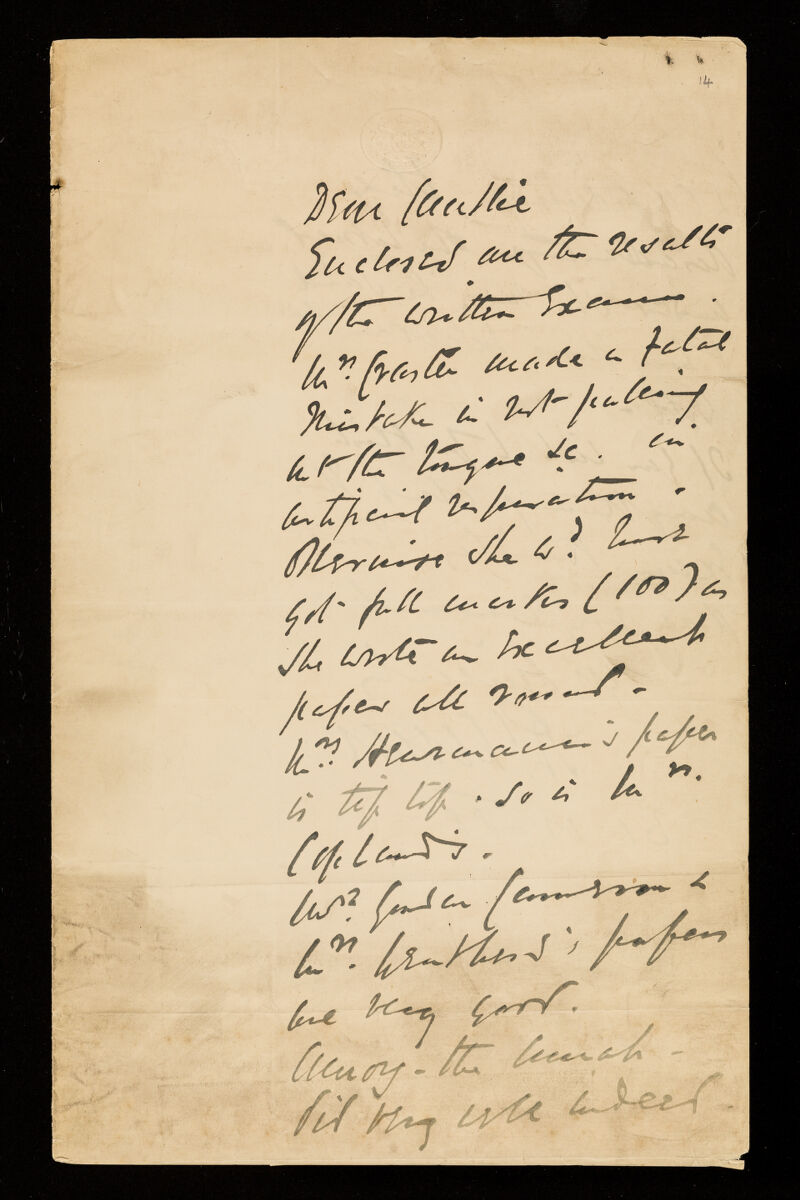 14
Dear Cantlie
Enclosed are the results
of the written Exams.
Mrs. Craster made a fatal
mistake in not pulling
out the tongue &c. in
artificial respiration.
Otherwise she wd. have
got full marks (100) as
she wrote an excellent
paper all round -
Mrs. 's paper
is tip top. So is Mrs.
Copland's.
Mrs. Gordon Cameron &
Mrs. 's papers
are very good.
- the -
did very well indeed.